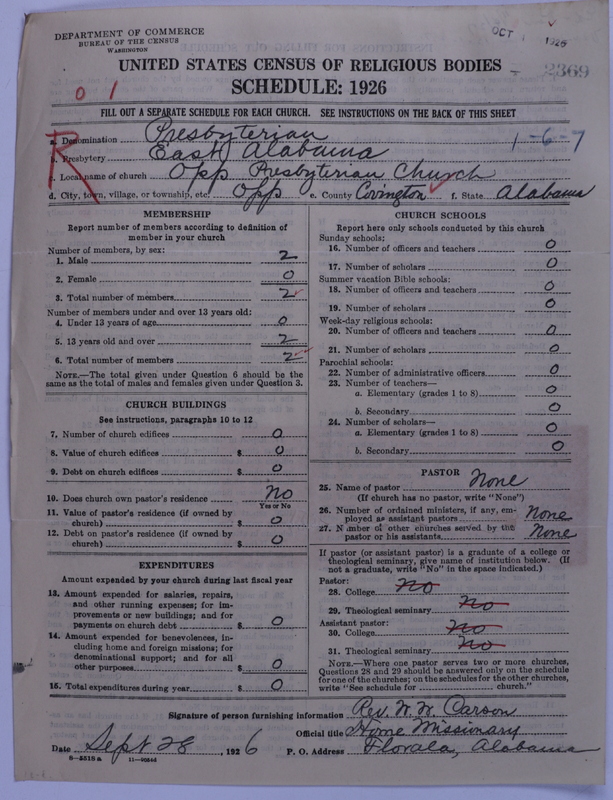 DEPARTMENT OF COMMERCE
BUREAU OF THE CENSUS
WASHINGTON
OCT 1 1926
UNITED STATES CENSUS OF RELIGIOUS BODIES
2369
SCHEDULE: 1926
0 1
FILL OUT A SEPARATE SCHEDULE FOR EACH CHURCH. SEE INSTRUCTIONS ON THE BACK OF THIS SHEET
R
a. Denomination Presbyterian
1-6-7
b. Presbytery East Alabama
c. Local name of church Opp Presbyterian Church
d. City, town, village, or township, etc. Opp e. County Covington f. State Alabama
MEMBERSHIP
Report number of members according to definition of
member in your church
Number of members, by sex:
1. Male 2
2. Female 0
3. Total number of members 2
Number of members under and over 13 years old:
4. Under 13 years of age 0
5. 13 years old and over 2
6. Total number of members 2
NOTE.—The total given under Question 6 should be
same as the total of males and females given under Question 3.
CHURCH BUILDINGS
See instructions, paragraphs 10 to 12
7. Number of church edifices 0
8. Value of church edifices $ 0
9. Debt on church edifices $ 0
10. Does church own pastor's residence No
Yes or No
11. Value of pastor's residence (if owned by
church) $ 0
12. Debt on pastor's residence (if owned by
church) $ 0
EXPENDITURES
Amount expended by your church during last fiscal year
13. Amount expended for salaries, repairs,
and other running expenses; for im-
provements or new buildings; and for
payments on church debt $ 0
14. Amount expended for benevolences, in-
cluding home and foreign missions; for
denominational support; and for all
other purposes $ 0
15. Total expenditures during year $ 0
CHURCH SCHOOLS
Report here only schools conducted by this church
Sunday schools:
16. Number of officers and teachers 0
17. Number of scholars 0
Summer vacation Bible schools:
18. Number of officers and teachers 0
19. Number of scholars 0
Week-day religious schools:
20. Number of officers and teachers 0
21. Number of scholars 0
Parochial schools:
22. Number of administrative officers 0
23. Number of teachers—
a. Elementary (grades 1 to 8) 0
b. Secondary 0
24. Number of scholars—
a. Elementary (grades 1 to 8) 0
b. Secondary 0
PASTOR
25. Name of pastor None
(If church has no pastor, write "None")
26. Number of ordained ministers, if any, em-
ployed as assistant pastors None
27. Number of other churches served by the
pastor or his assistants None
If pastor (or assistant pastor) is a graduate of a college or
theological seminary, give name of institution below. (If
not a graduate, write "No" in the space indicated.)
Pastor:
28. College No
29. Theological seminary No
Assistant pastor:
30. College No
31. Theological seminary No
NOTE.—Where one pastor serves two or more churches,
Questions 28 and 29 should be answered only on the schedule
for one of the churches; on the schedules for the other churches,
write "See schedule for church."
Signature of person furnishing information Rev. W. W. Carson
Official title Home Missionary
Date Sept 28, 1926 P. O. Address Florala, Alabama
8—5518 a